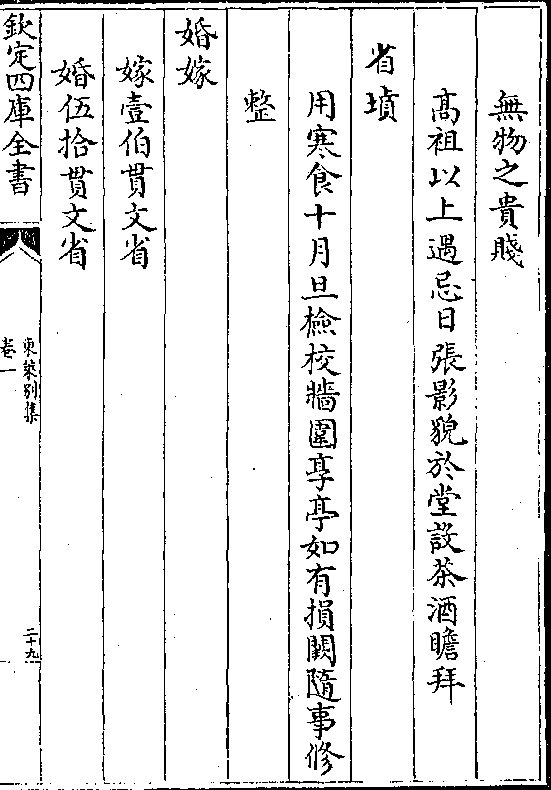 無物之貴賤
髙祖以上遇忌日張影貌於堂設茶酒瞻拜
省墳
用寒食十月旦檢校牆圍享亭如有損闕隨事修
整
婚嫁
嫁壹伯貫文省
婚伍拾貫文省
欽定四庫全書
東萊别集
卷一
二十九